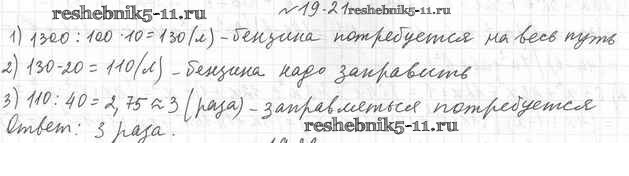 reshebnik5-11.ru
№ 19.21
reshebnik5-11.ru
1) 1300 : 100 · 10 = 130 (л) – бензина потребуется на весь путь
2) 130-20 = 110 (л) – бензина надо заправить
3) 110 : 40 = 2,75 ≈ 3 (раза) – заправляться потребуется
Ответ: 3 раза.
reshebnik5-11.ru